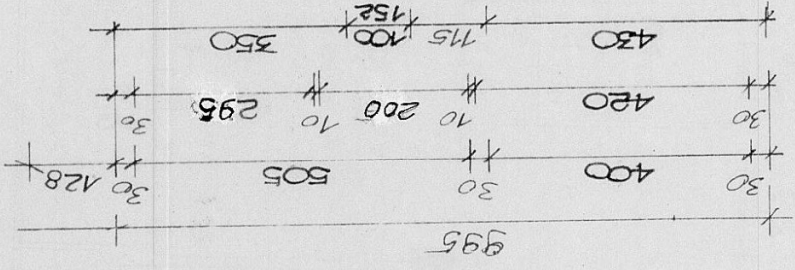 995
30 400 30 505 30 30 128
30 420 10 200 10 295 30
430 115 100 350
152